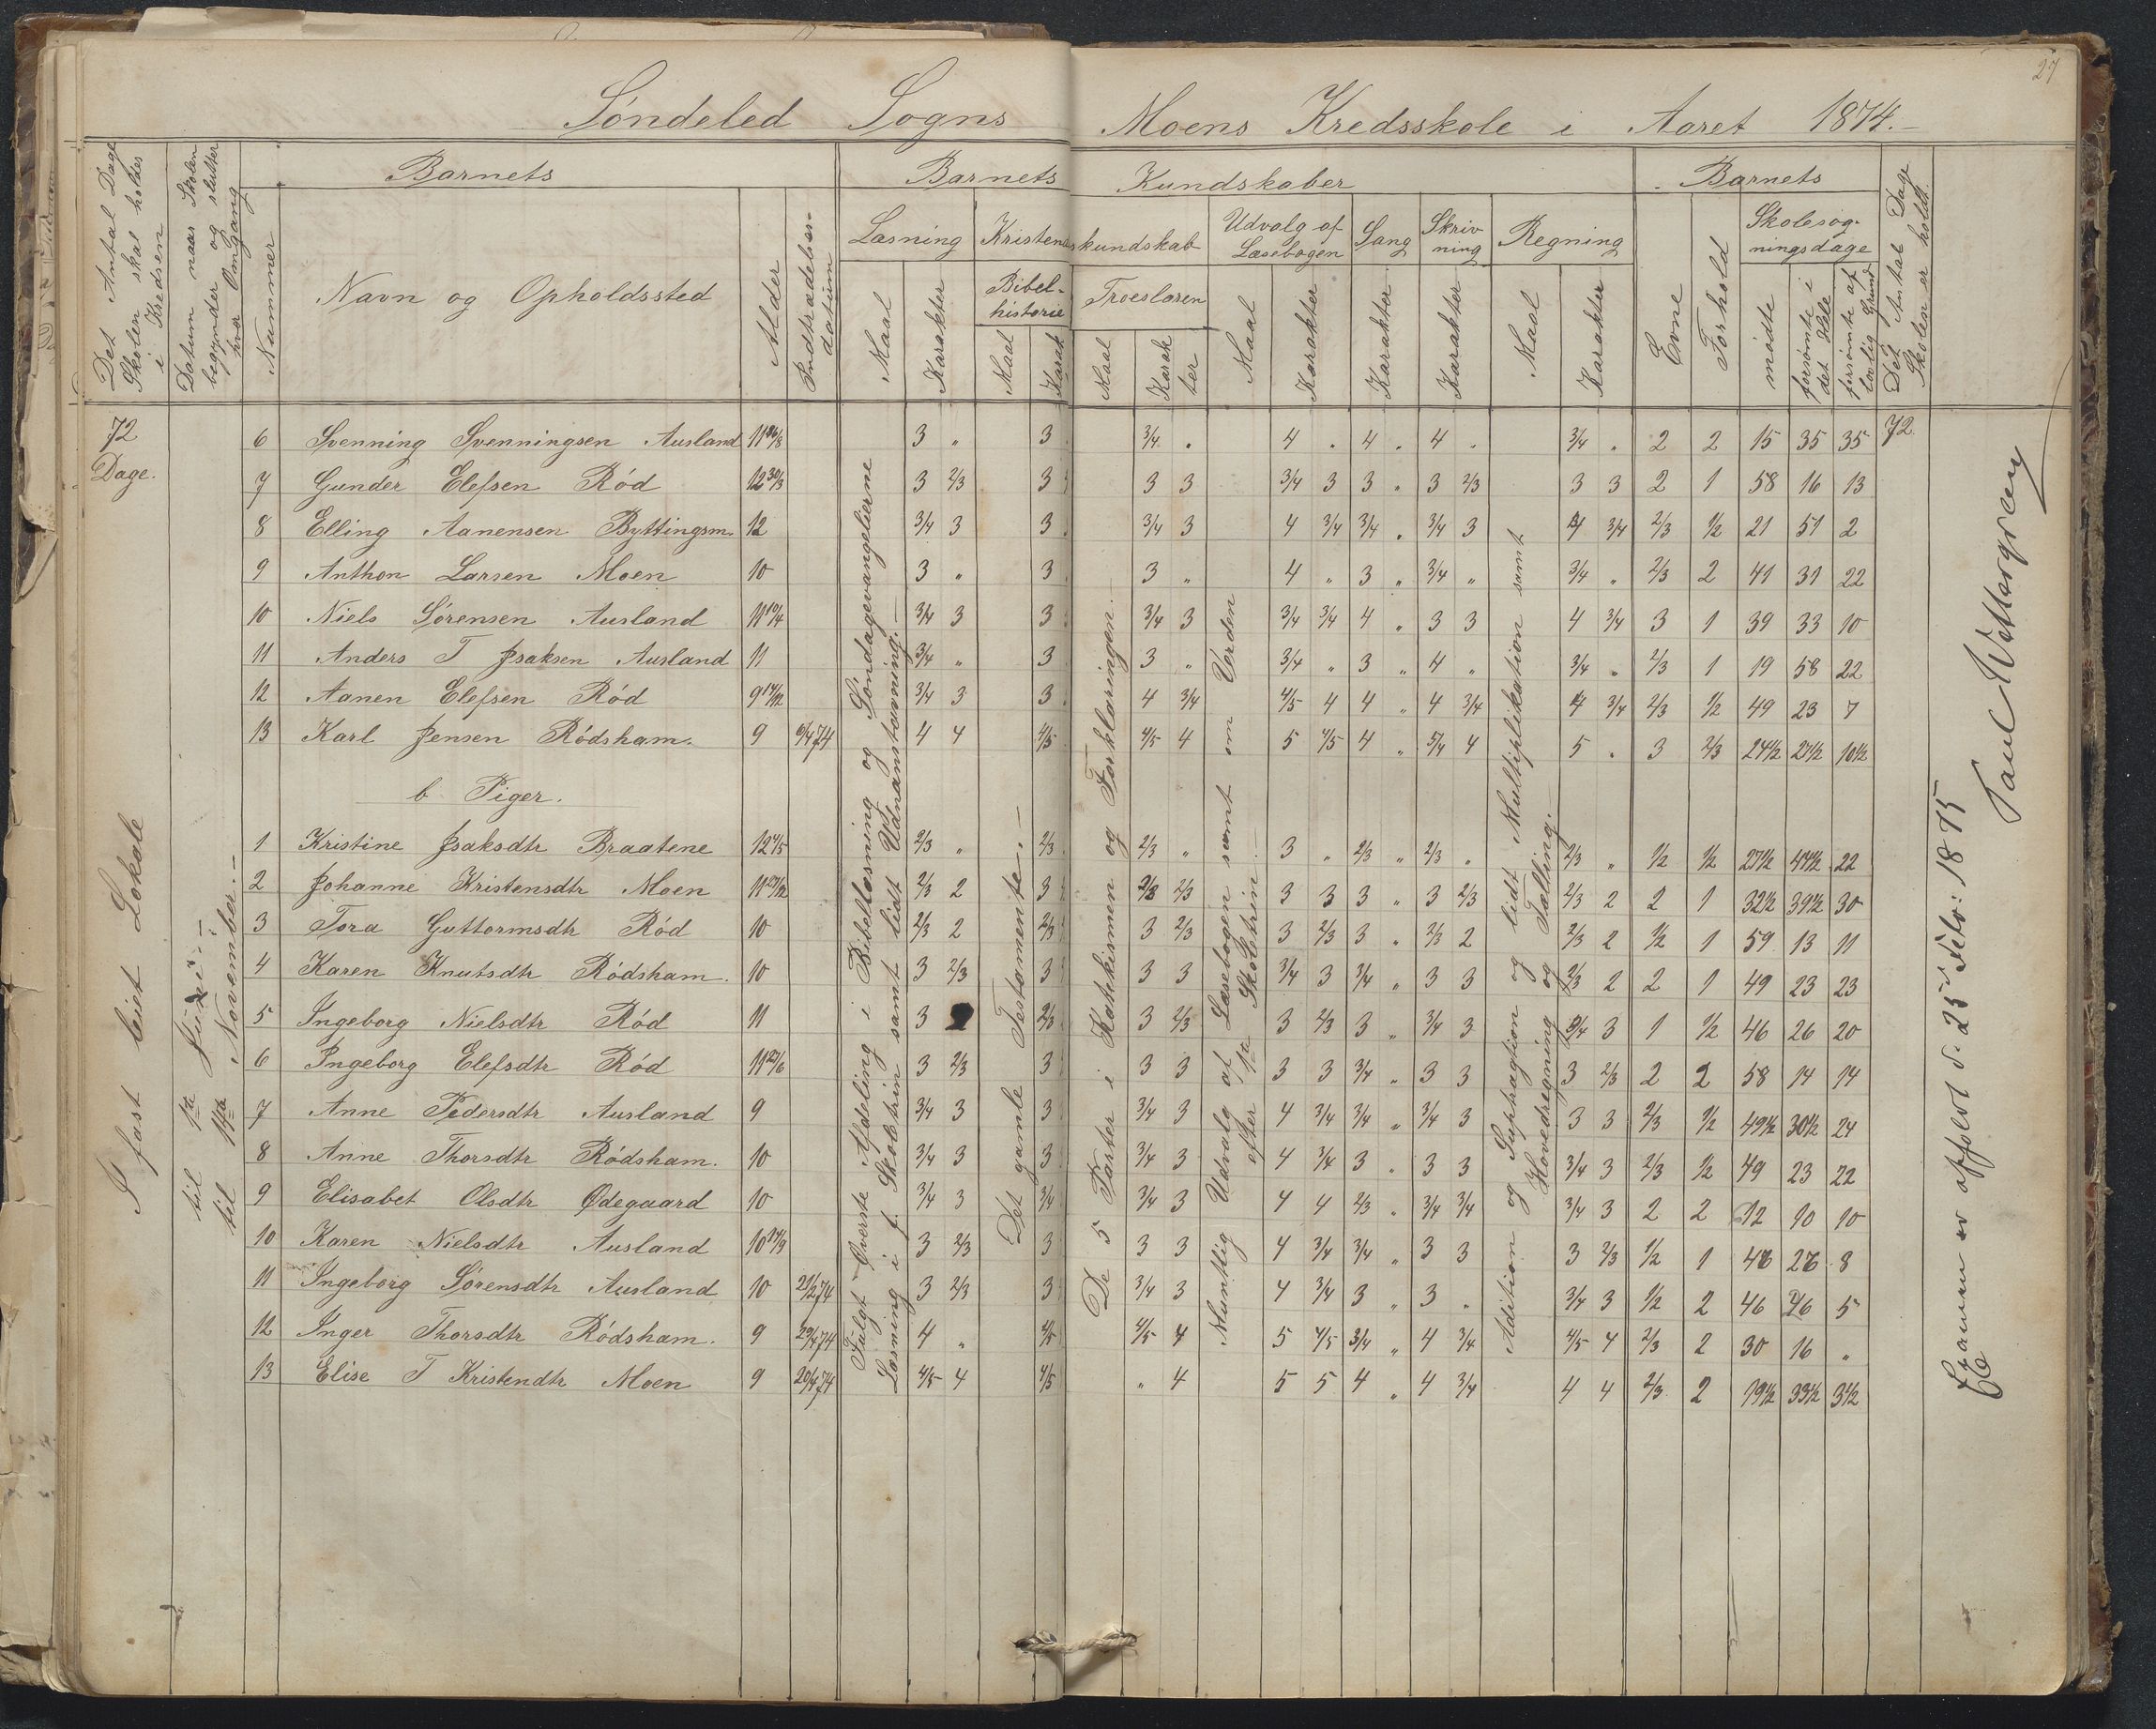 27
Søndeled Sogns Moens Kredsskole i Aaret 1874.
Det Antal Dage Skolen skal holdes i Kredsen
Datum naar Skolen begynder og slutter hver Omgang
Barnets
Nummer
Navn og Opholdssted
Alder
Indtrædelsesdatum
Barnets Kundskaber
Læsning
Maal
Karakter
Kristendomskundskab
Bibelhistorie
Maal
Karak
Troeslæren
Maal
Karakter
Udvalg af Læsebogen
Maal
Karakter
Sang
Karakter
Skrivning
Karakter
Regning
Maal
Karakter
Barnets
Evne
Forhold
Skolesøgningsdage
mødte
forsømte i det Hele
forsømte af lovlig Grund
Det Antal Dage Skolen er holdt.
72 Dage.
I fast leiet Lokale
til 1te Juni
til 14de November.
6 Svenning Svenningsen Ausland 11 26/8 3 " 3 3/4 " 4 " 4 " 4 " 3/4 " 2 2 15 35 35 72
7 Gunder Elefsen Rød 12 30/3 3 2/3 3 3 3 3/4 3 3 " 3 2/3 3 3 2 1 58 16 13
8 Elling Aanensen Byttingsm. 12 3/4 3 3 3/4 3 4 3/4 3/4 " 3/4 3 4 3/4 2/3 1/2 21 51 2
9 Anthon Larsen Moen 10 3 " 3 3 " 4 " 3 " 3/4 " 3/4 " 2/3 2 41 31 22
10 Niels Sørensen Ausland 11 10/4 3/4 3 3 3/4 3 3/4 3/4 4 " 3 3 4 3/4 3 1 39 33 10
11 Anders T Isaksen Ausland 11 3/4 " 3 3 " 3/4 " 3 " 4 " 3/4 " 2/3 1 19 58 22
12 Aanen Elefsen Rød 9 14/12 3/4 3 3 4 3/4 4/5 4 4 " 4 3/4 4 3/4 2/3 1/2 49 23 7
13 Karl Jensen Rødsham. 9 9/4 74 4 4 4/5 4/5 4 5 4/5 4 " 5/4 4 5 " 3 2/3 24 1/2 27 1/2 10 1/2
b Piger.
1 Kristine Isaksdtr Braatene 12 4/5 2/3 " 2/3 2/3 " 3 " 2/3 " 2/3 " 2/3 " 1/2 1/2 27 1/2 44 1/2 22
2 Johanne Kristensdtr Moen 11 27/12 2/3 2 3 2/3 2/3 3 3 3 " 3 2/3 2/3 2 2 1 32 1/2 39 1/2 30
3 Tora Guttormsdtr Rød 10 2/3 2 2/3 3 2/3 3 2/3 3 " 2/3 2 2/3 2 1/2 1 59 13 11
4 Karen Knutsdtr Rødsham. 10 3 2/3 3 3 3 3/4 3 3/4 " 3 3 2/3 2 2 1 49 23 23
5 Ingeborg Nielsdtr Rød 11 3 2/3 3 2/3 3 2/3 3 " 3/4 3 3/4 3 1 1/2 46 26 20
6 Ingeborg Elefsdtr Rød 11 27/6 3 2/3 3 3 3 3 3 3/4 " 3 3 3 2/3 2 2 58 14 14
7 Anne Pedersdtr Ausland 9 3/4 3 3 3/4 3 4 3/4 3/4 " 3/4 3 3 3 2/3 1/2 49 1/2 30 1/2 24
8 Anne Thorsdtr Rødsham. 10 3/4 3 3 3/4 3 4 3/4 3 " 3 3 3/4 3 2/3 1/2 49 23 22
9 Elisabet Olsdtr Ødegaard 10 3/4 3 3/4 3/4 3 4 4 2/3 " 3/4 3/4 3/4 3 2 2 12 10 10
10 Karen Nielsdtr Ausland 10 24/3 3 2/3 3 3 3 4 3/4 3/4 " 3 3 3 2/3 1/2 1 46 26 8
11 Ingeborg Sørensdtr Ausland 10 21/2 74 3 2/3 3 3/4 3 4 3/4 3 " 3 " 3/4 3 1/2 2 46 26 5
12 Inger Thorsdtr Rødsham. 9 29/4 74 4 " 4/5 4/5 4 5 4/5 3/4 " 4 3/4 4/5 4 2/3 2 30 16 "
13 Elise T Kristendtr Moen 9 20/4 74 4/5 4 4/5 " 4 5 5 4 " 4 3/4 4 4 2/3 2 19 1/2 33 1/2 3 1/2
Fulgt Øverste Afdeling i Bibellæsning og Søndagevangelierne
Læsning i f. Skoletrin samt lidt Udnanstavning.
Det gamle Testamente.
De 5 Parter i Katekismen og Forklaringen.
Mundtlig Udvalg af Læsebogen samt om Verden
efter 1te Skoletrin.
Adition og Suptragtion og lidt Multiplikation samt
Hovedregning og Tælling.
Examen er afholdt d. 25 Febr: 1875
Paul Vettergreen